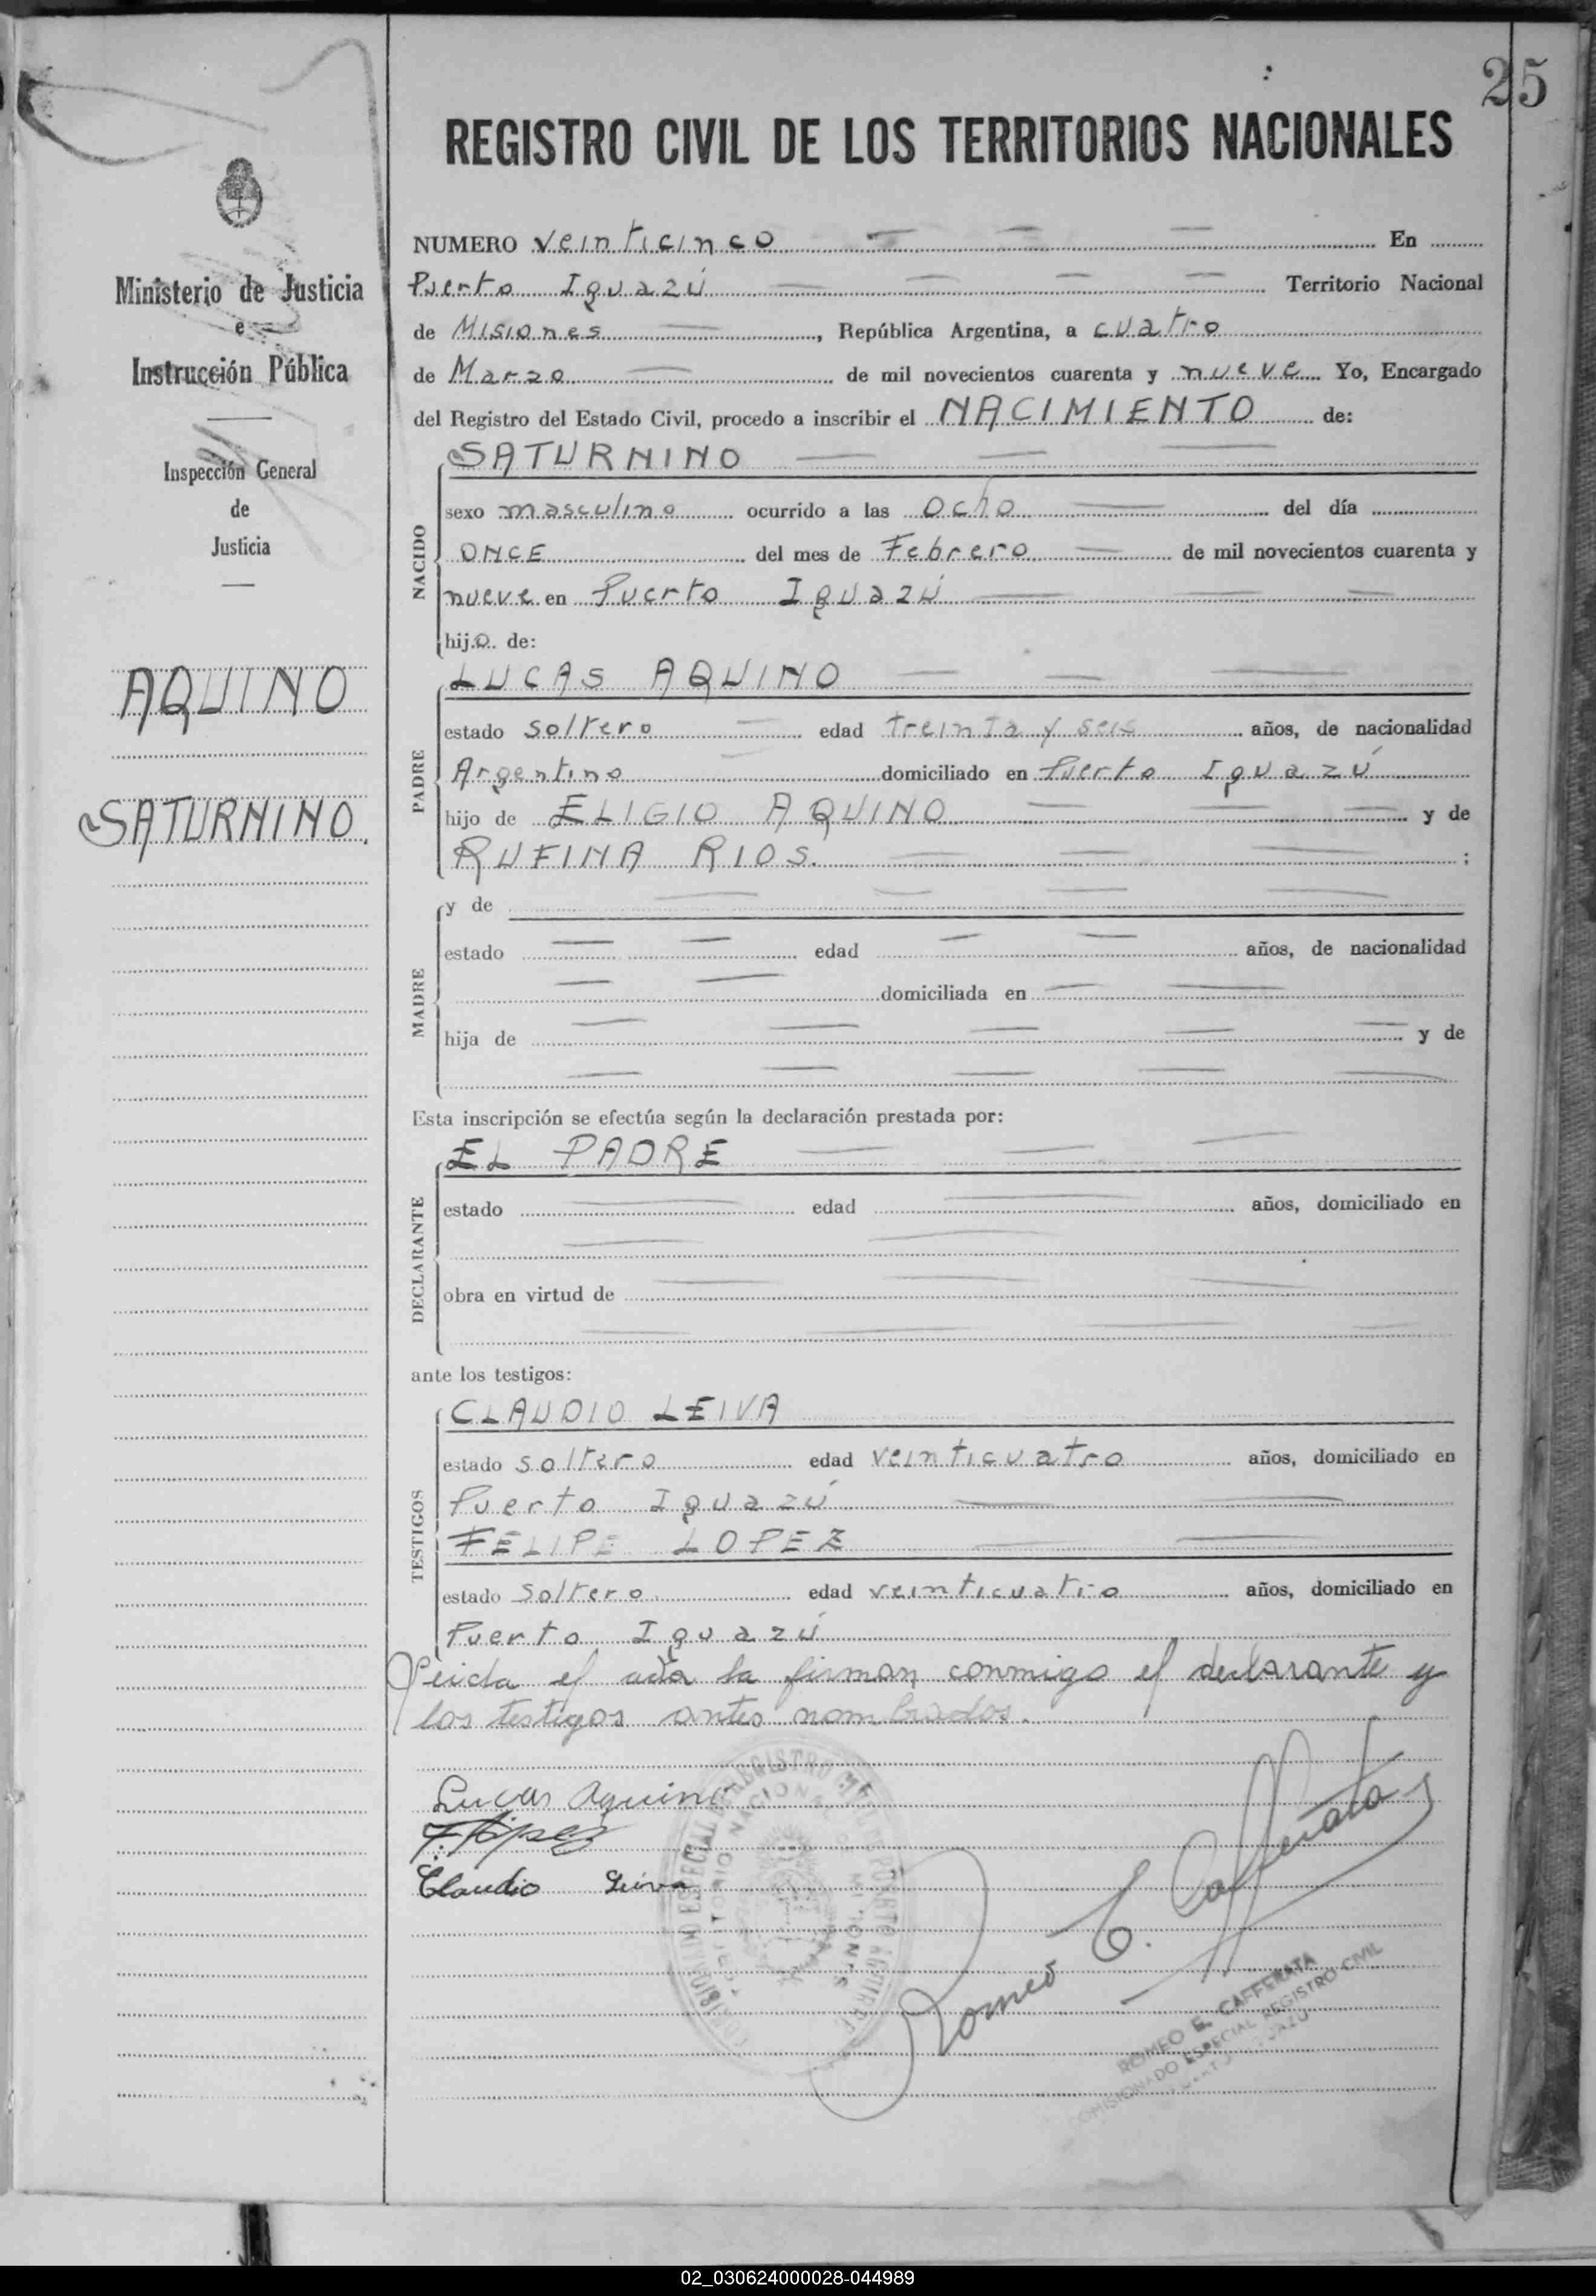 25
REGISTRO CIVIL DE LOS TERRITORIOS NACIONALES
Ministerio de Justicia
e
Instrucción Pública
Inspección General
de
Justicia
AQUINO
SATURNINO
NUMERO veinticinco En
Puerto Iguazú Territorio Nacional
de Misiones, República Argentina, a cuatro
de Marzo de mil novecientos cuarenta y nueve Yo, Encargado
del Registro del Estado Civil, procedo a inscribir el NACIMIENTO de:
NACIDO
SATURNINO
sexo masculino ocurrido a las ocho del día
ONCE del mes de Febrero de mil novecientos cuarenta y
nueve en Puerto Iguazú
hijo de:
PADRE
LUCAS AQUINO
estado soltero edad treinta y seis años, de nacionalidad
Argentino domiciliado en Puerto Iguazú
hijo de ELIGIO AQUINO y de
RUFINA RIOS. ;
MADRE
y de
estado edad años, de nacionalidad
domiciliada en
hija de y de
Esta inscripción se efectúa según la declaración prestada por:
DECLARANTE
EL PADRE
estado edad años, domiciliado en
obra en virtud de
ante los testigos:
TESTIGOS
CLAUDIO LEIVA
estado soltero edad veinticuatro años, domiciliado en
Puerto Iguazú
FELIPE LOPEZ
estado soltero edad veinticuatro años, domiciliado en
Puerto Iguazú
Leida el acta la firman conmigo el declarante y
los testigos antes nombrados.
Lucas Aquino
F. López
Claudio Leiva
Romeo E. Cafferata
ROMEO E. CAFFERATA
COMISIONADO ESPECIAL REGISTRO CIVIL
02_030624000028-044989